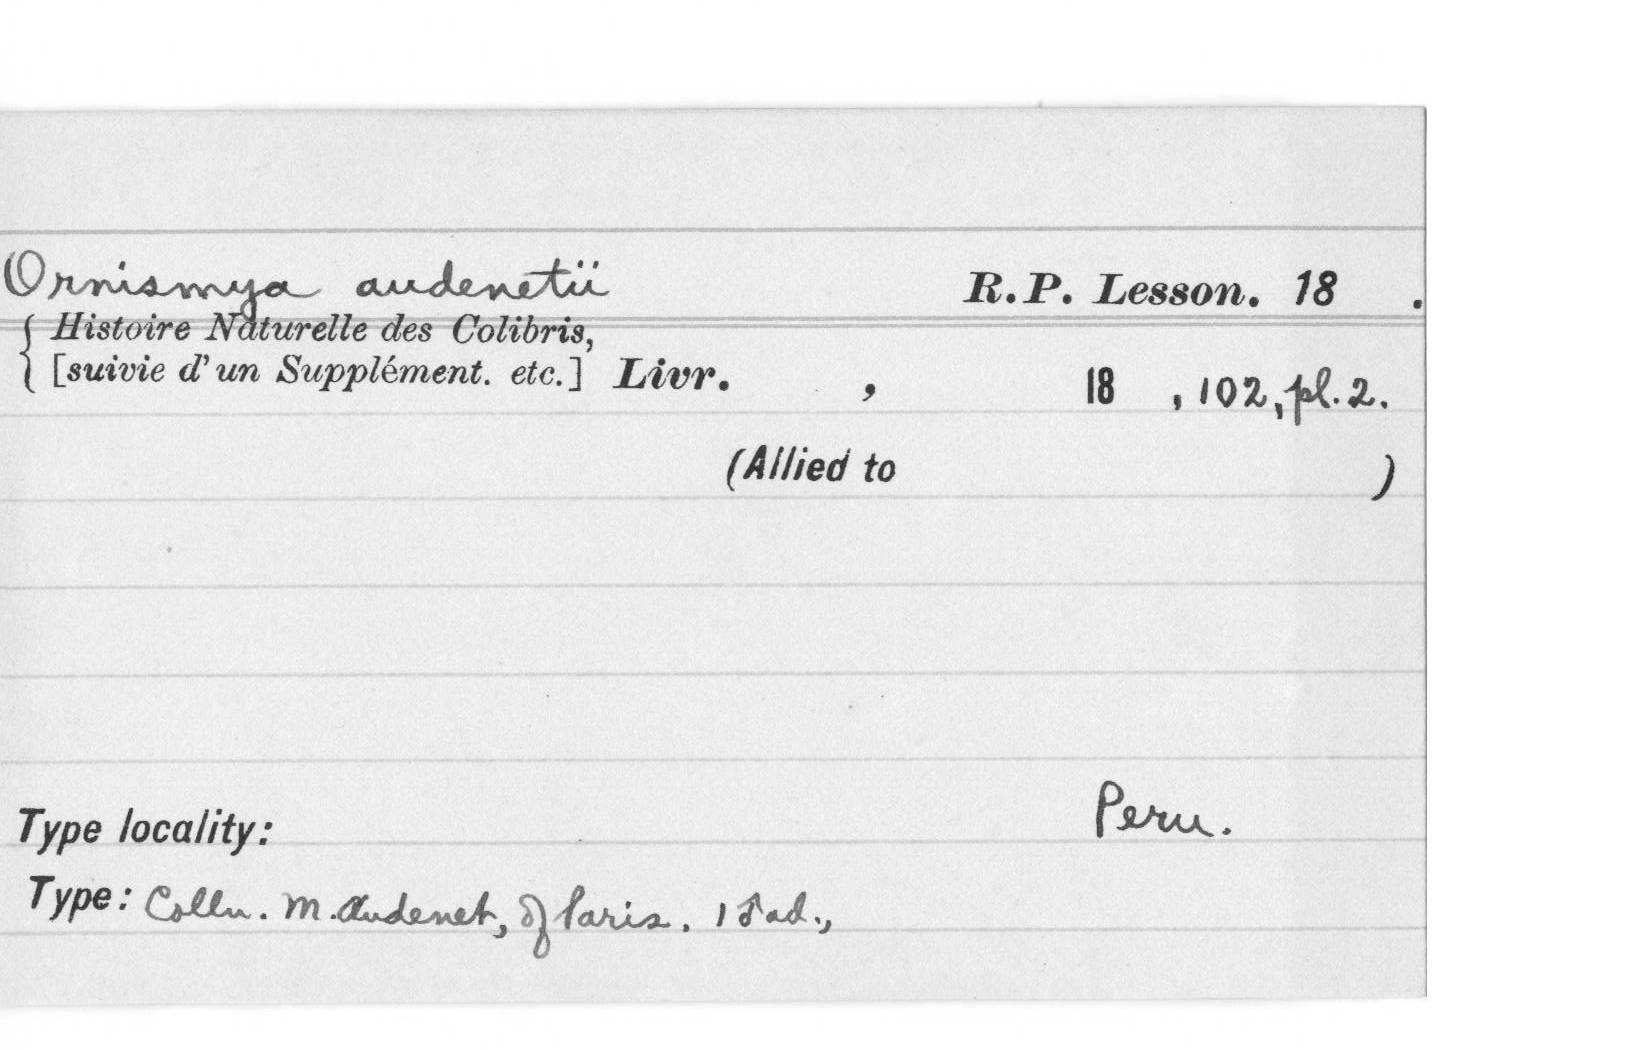 Ornismya audenetii R.P. Lesson. 18 .
{ Histoire Naturelle des Colibris,
[suivie d'un Supplément. etc.] Livr. , 18 , 102, pl. 2.
(Allied to )
Peru.
Type locality:
Type: Colln. M. Audenet, of Paris. 1 ♂ ad.,